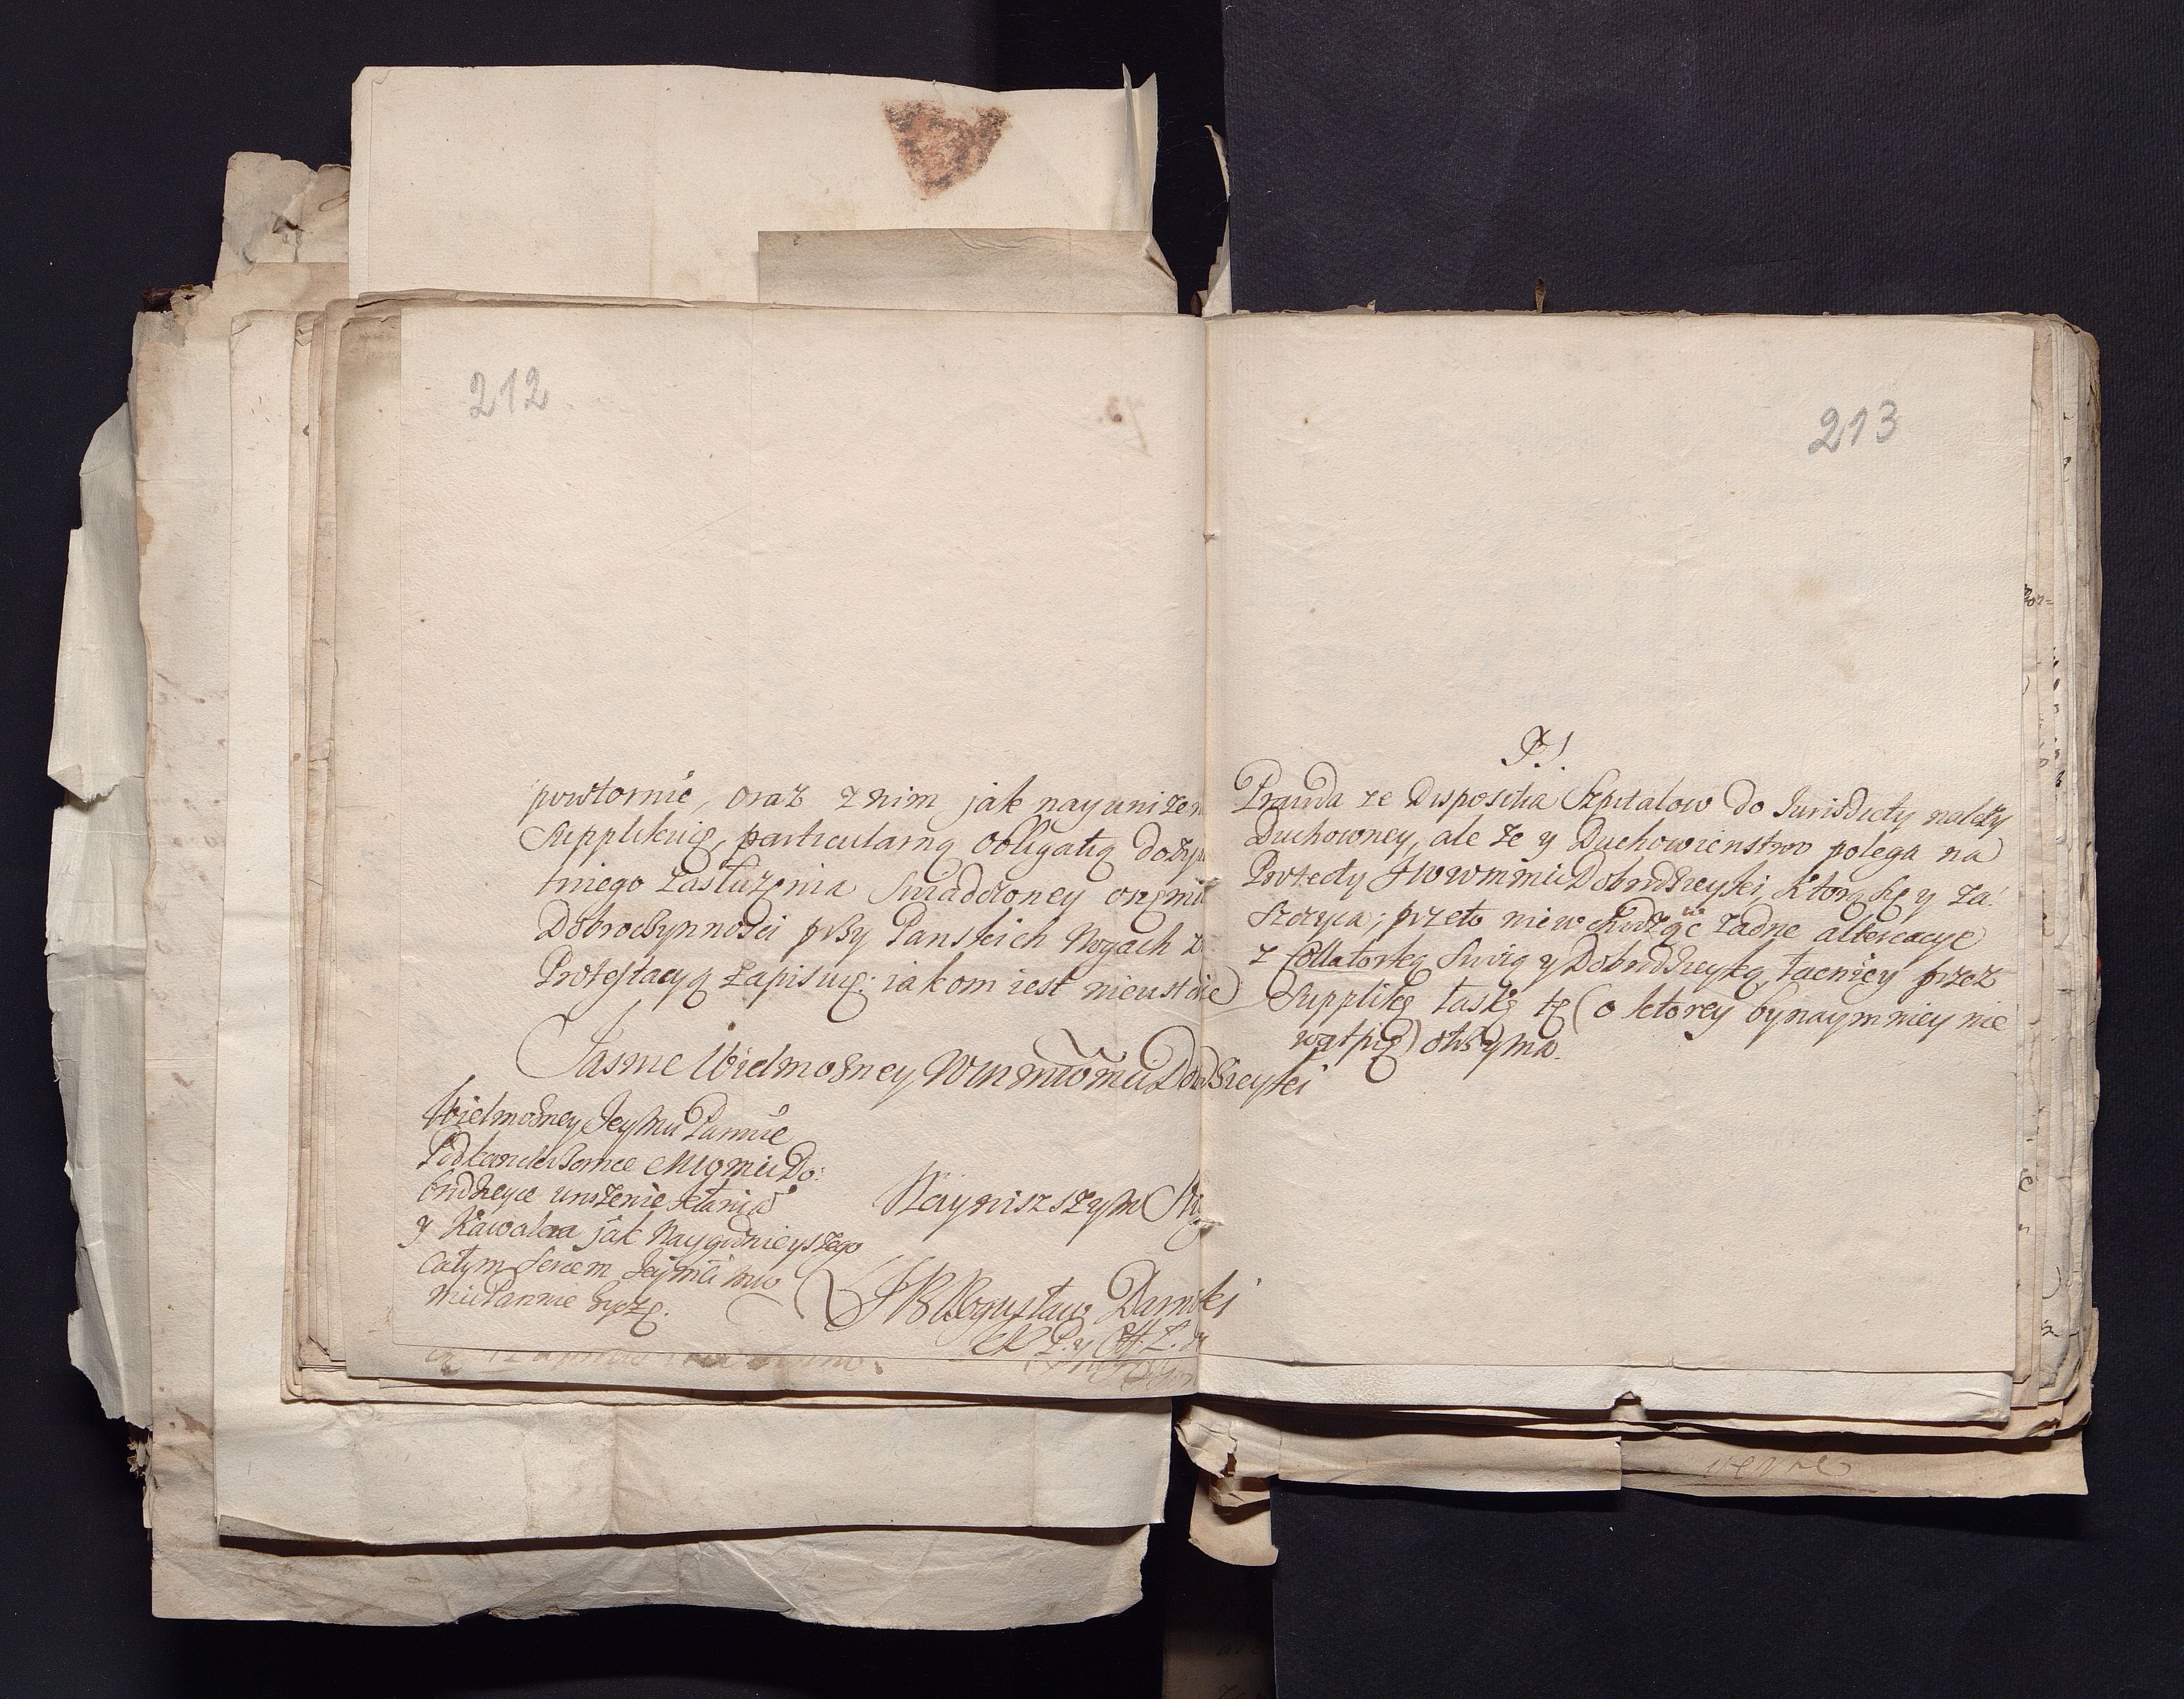 212
powtornie, oraz z nim jak nayunizen
Supplikuię, particularną obligatią dozy
tniego zasłuzęnia swiadcżoney
Dobrocżynności przy Panskich Nogach z
Protestacyą zapisuię: iakom iest nieustaie
Jasnie Wielmożney
Wielmożney JeyMci Pannie
Mey Mci Do:
brodzieyce unizenie kłaniā
y Kawalera jak naygodnieyszego
całym sercem Jeymci
Mci Pannie życzę.
Nayniszszym
Bogusław Darowski
213
PS.
Prawda ze Dispositia Szpitalow do Jurisdicty należy
Duchowney, ale że y Duchowienstwo polega na
Protecty JWWMMci Dobrodzieyki, ktorą się y za:
szczyca; przeto nie wchodząc w żadne altercacye
z Collatorką Swoią y Dobrodzieyką, łacniey przez
Supplikę łaskę tę (o ktorey bynaymniey nie
wątpię) otrzyma.